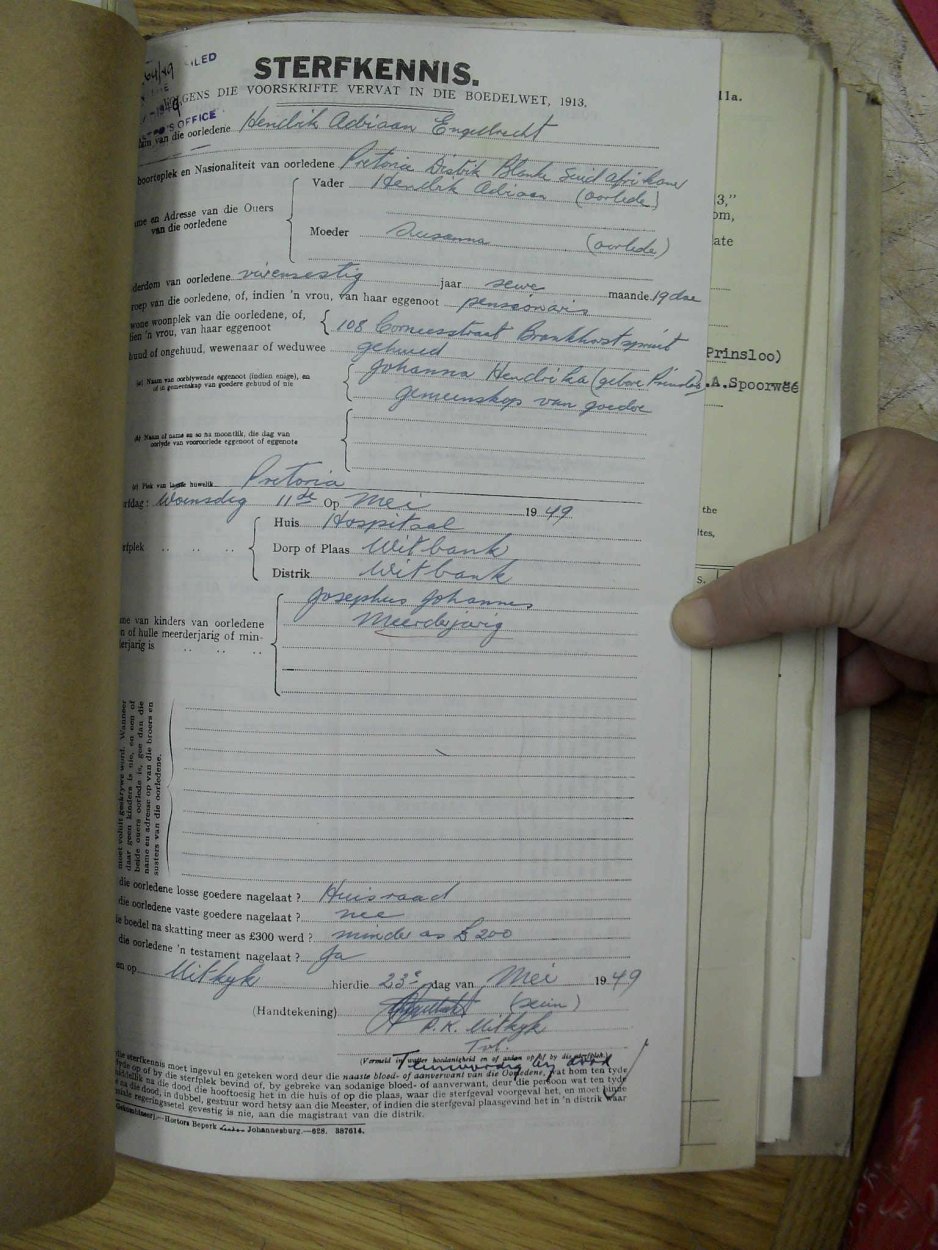 64/49 FILED
-1949
OFFICE
STERFKENNIS.
GENS DIE VOORSKRIFTE VERVAT IN DIE BOEDELWET, 1913.
van die oorledene Hendrik Adriaan Engelbrecht
boorteplek en Nasionaliteit van oorledene Pretoria Distrik Blanke Suid Afrikaner
Vader Hendrik Adriaan (oorlede)
me en Adresse van die Ouers
van die oorledene
Moeder Susanna (oorlede)
derdom van oorledene vierensestig jaar sewe maande 19 dae
roep van die oorledene, of, indien 'n vrou, van haar eggenoot pensionaris
wone woonplek van die oorledene, of,
dien 'n vrou, van haar eggenoot
108 Corneesstraat Bronkhorstspruit
huud of ongehuud, wewenaar of weduwee gehuwd
(a) Naam van oorblywende eggenoot (indien enige), en
of in gemeenskap van goedere gehuud of nie
Johanna Hendrika (gebore Prinsloo)
gemeenskap van goedere
(b) Naam of name en so na moontlik, die dag van
oorlyde van vooroorlede eggenoot of eggenote
(c) Plek van laaste huwelik Pretoria
rfdag: Woensdag 11de Op Mei 1949
Huis Hospitaal
rfplek
Dorp of Plaas Witbank
Distrik Witbank
Josephus Johannes
Meerderjarig
me van kinders van oorledene
n of hulle meerderjarig of min-
derjarig is
moet voluit geskrywe word. Wanneer
daar geen kinders is nie, en een of
beide ouers oorlede is, gee dan die
name en adresse op van die broers en
susters van die oorledene.
die oorledene losse goedere nagelaat ? Huisraad
die oorledene vaste goedere nagelaat ? nee
ie boedel na skatting meer as £300 werd ? minder as £200
die oorledene 'n testament nagelaat ? Ja
en op Uitkyk hierdie 23e dag van Mei 1949
(Handtekening) (seun)
P.K. Uitkyk
Tvl.
(Vermeld in watter hoedanigheid en of aldan op of by die sterfplek)
Teenwoordig by dood
die sterfkennis moet ingevul en geteken word deur die naaste bloed- of aanverwant van die Oorledene, wat hom ten tyde
tyde op of by die sterfplek bevind of, by gebreke van sodanige bloed- of aanverwant, deur die persoon wat ten tyde
middellik na die dood die hooftoesig het in die huis of op die plaas, waar die sterfgeval voorgeval het, en moet binde
e na die dood, in dubbel, gestuur word hetsy aan die Meester, of indien die sterfgeval plaasgevind het in 'n distrik waar
regeringssetel gevestig is nie, aan die magistraat van die distrik.
Hortors Beperk Johannesburg.—628. 387614.
11a.
3,"
om,
ate
Prinsloo)
.A.Spoorweë
the
ites,
S.